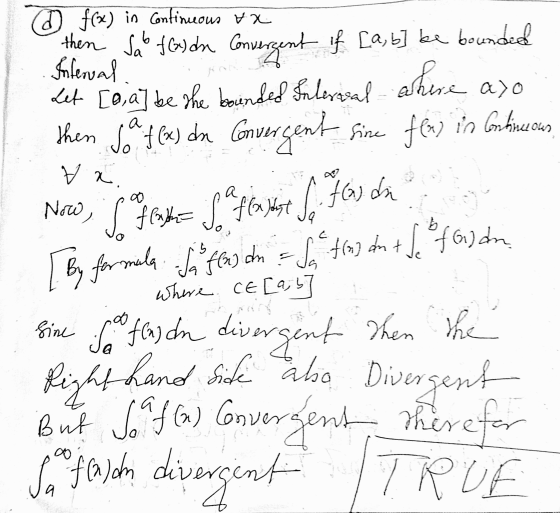 (d) f(x) in Continuous ∀ x
then ∫_a^b f(x)dn Convergent if [a,b] be bounded
Interval.
Let [0,a] be the bounded Interval where a>0
then ∫_0^a f(x) dn Convergent Sinc f(x) in Continuous
∀ x.
Now, ∫_0^∞ f(x)dn = ∫_0^a f(x)dn + ∫_a^∞ f(x) dn
[By formula ∫_a^b f(x) dn = ∫_a^c f(x) dn + ∫_c^b f(x) dn.
where c∈[a,b]
Sinc ∫_0^∞ f(x) dn divergent then the
Right hand Side also Divergent
But ∫_0^a f(x) Convergent therefor
∫_a^∞ f(x)dn divergent TRUE